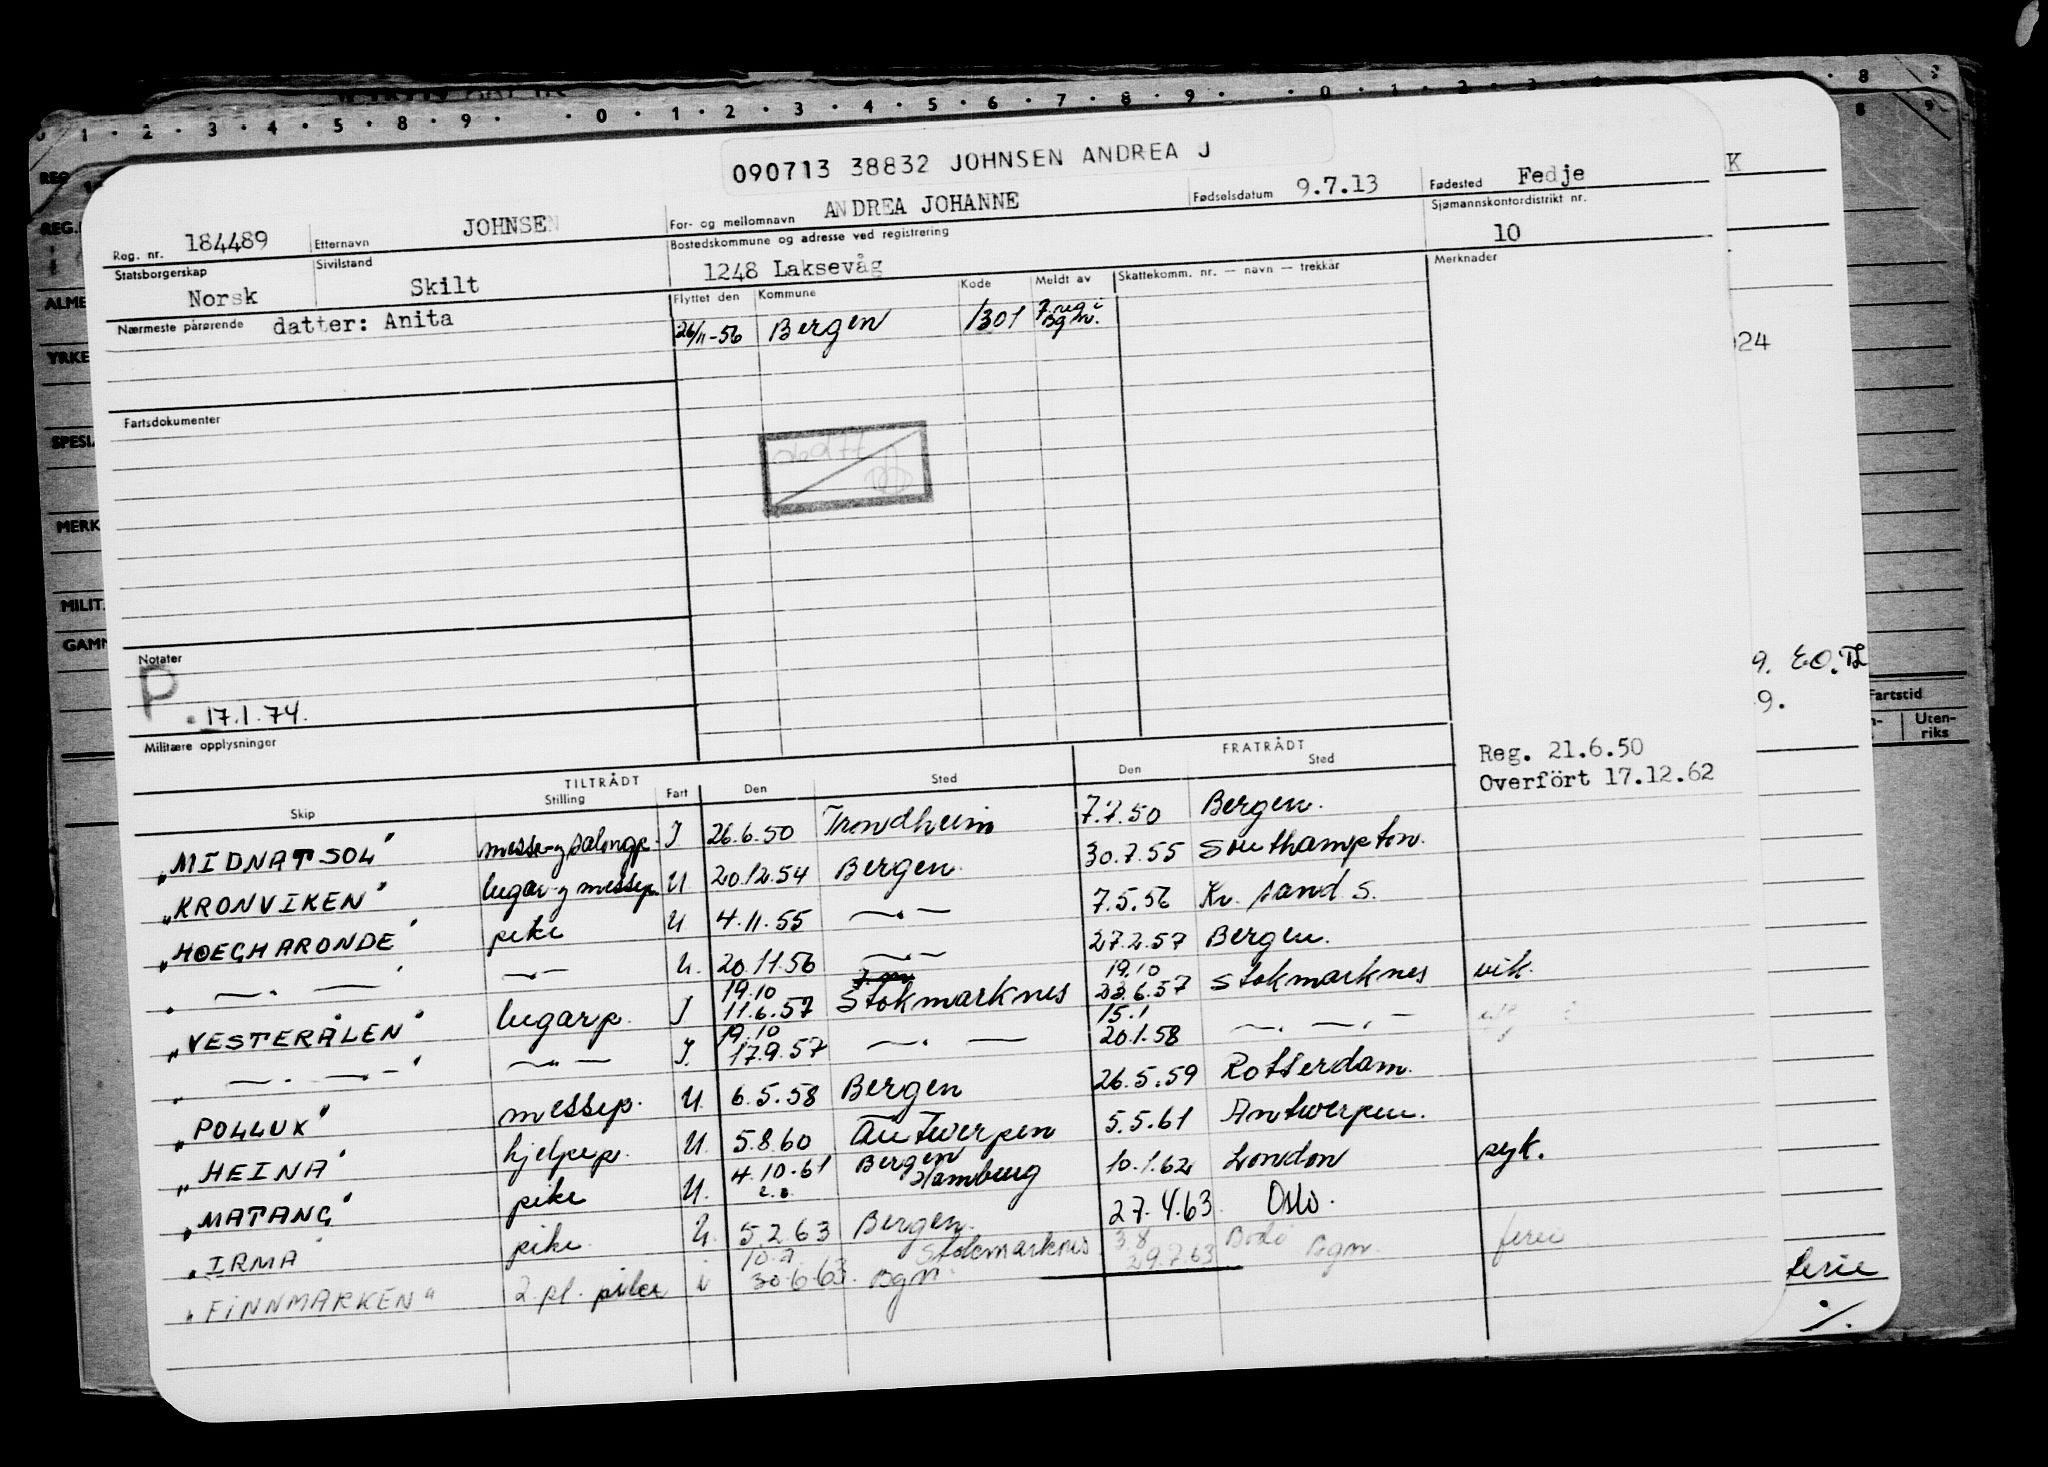 0 · 1 · 2 · 3 · 4 · 5 · 8 · 9 · · 0 · 1 · 2 · 3 · 4 · 5 · 6 · 7 · 8 · 9 · · 0 · 1 · 2 · 3 · 4 8 · 9
090713 38832 JOHNSEN ANDREA J
Reg. nr. 184489 Etternavn JOHNSEN For- og mellomnavn ANDREA JOHANNE Fødselsdatum 9.7.13 Fødested Fedje
Statsborgerskap Norsk Sivilstand Skilt Bostedskommune og adresse ved registrering 1248 Laksevåg Sjømannskontordistrikt nr. 10
Nærmeste pårørende datter: Anita Flyttet den Kommune Kode Meldt av Skattekomm. nr. — navn — trekkår Merknader
26/11-56 Bergen 1301 F.reg i Bgn.
Fartsdokumenter
Notater
P
17.1.74.
Militære opplysninger
Reg. 21.6.50
Overført 17.12.62
TILTRÅDT FRATRÅDT
Skip Stilling Fart Den Sted Den Sted
"MIDNATSOL" messe-og salongp. I 26.6.50 Trondheim 7.7.50 Bergen.
"KRONVIKEN" lugar-og messep. U 20.12.54 Bergen. 30.7.55 Southampton.
"HOEGH ARONDE" pike U 4.11.55 —"— 7.5.56 Kr. sand S.
" —"— " —"— U. 20.11.56 —"— 27.2.57 Bergen.
"VESTERÅLEN" lugarp. I 19.10 11.6.57 Stokmarknes 19.10 23.6.57 Stokmarknes vik.
" —"— " —"— I. 19.10 17.9.57 —"— 15.1 20.1.58 —"—
"POLLUX" messep. U. 6.5.58 Bergen 26.5.59 Rotterdam.
"HEINA" hjelpep. U. 5.8.60 Antwerpen 5.5.61 Antwerpen.
"MATANG" pike U. 4.10.61 Bergen Hamburg 10.1.62 London syk.
"IRMA" pike. U. 5.2.63 Bergen. 27.4.63. Oslo.
"FINNMARKEN" 2. pl. pike i 10.7. 30.6.63. Stokmarknes Bgn. 3.8 29.7.63 Bodø Bgn. ferie
REG.
ALME
YRKE
SPESI
MERK
MILIT.
GAMM
K
024
9. EO.
9.
Fartstid
Uten-
riks
ferie
%.